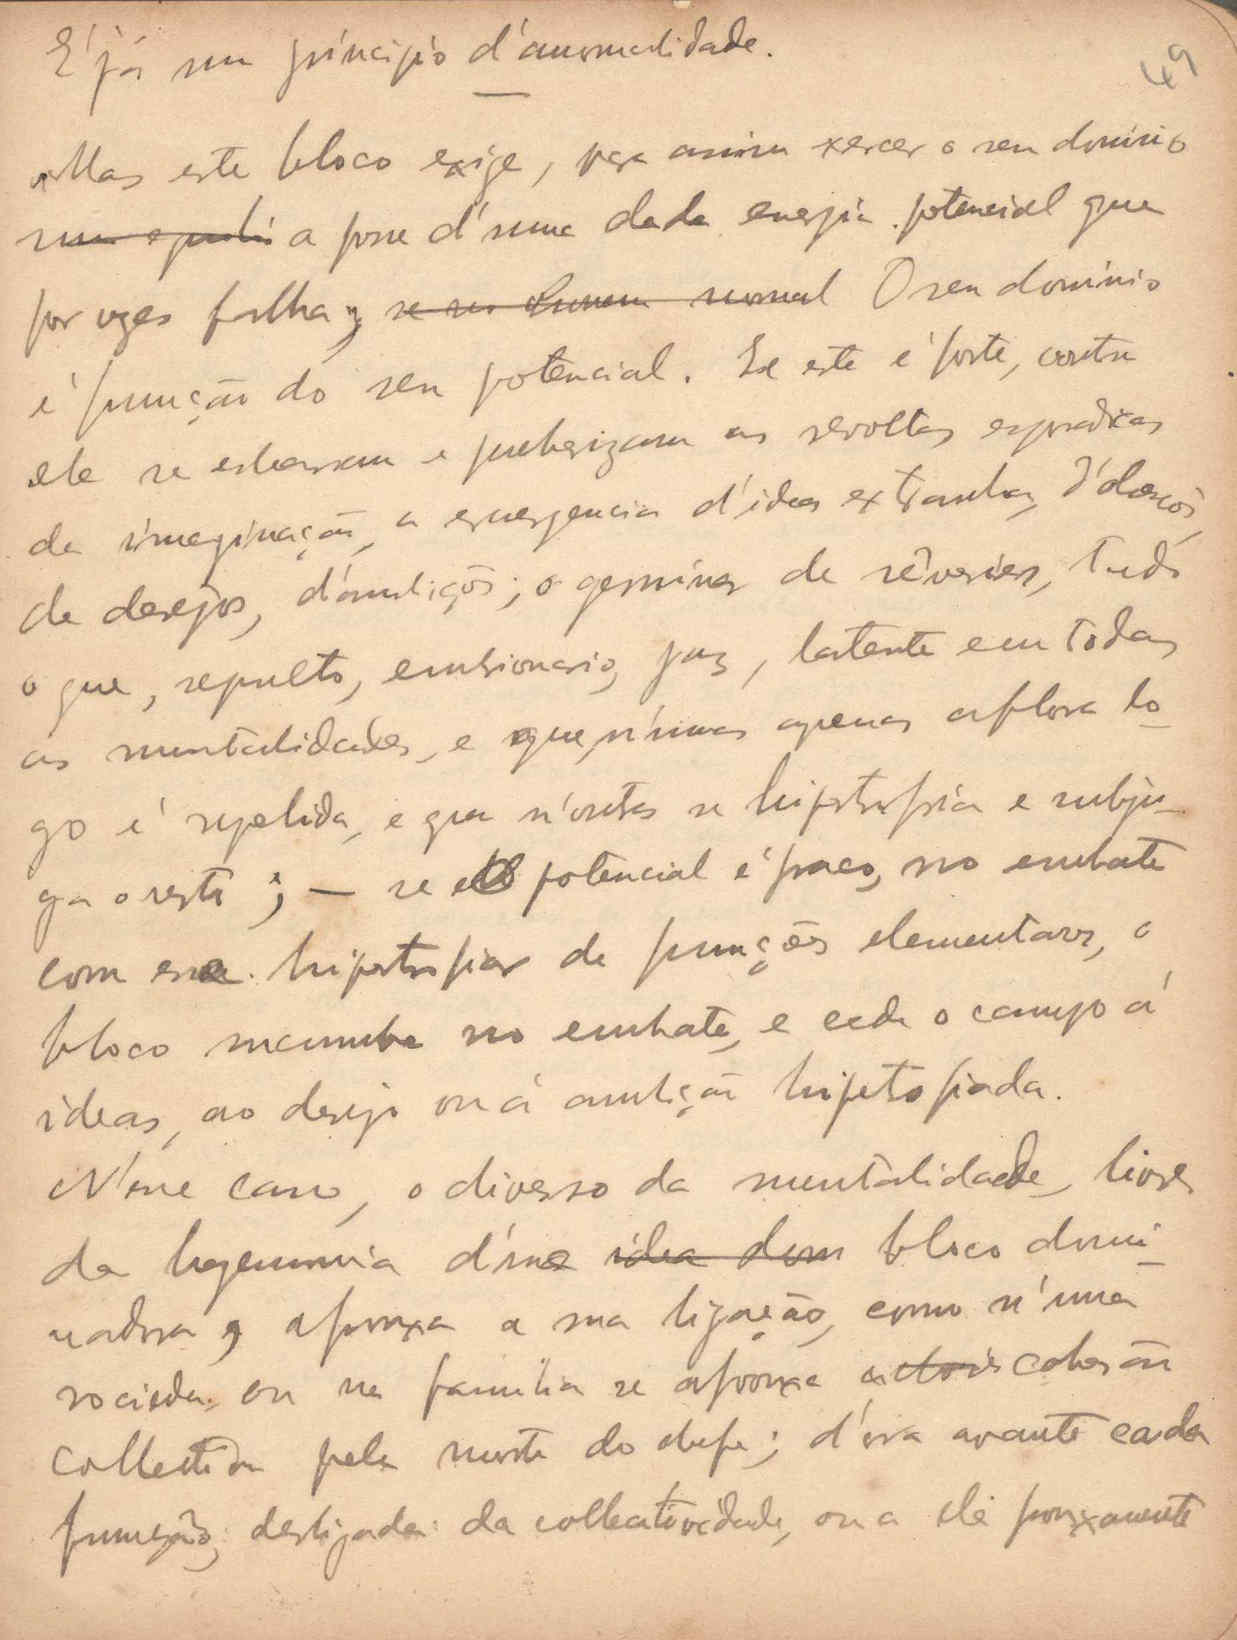 E' já um principio d'anormalidade.
49
Mas este bloco exige, para assim exercer o seu dominio
a posse d'uma dada energia potencial que
por vezes falha; se seu normal O seu dominio
é funcção do seu potencial. Se este é forte, contra
ele se esbarram e pulverizam as revoltas esporadicas
da imaginação, a emergencia d'ideas extranhas, d'obsessões,
de desejos, d'ambições; o germinar de rêveries, tudo
o que, sepulto, embrionario, jaz, latente em todas
as mentalidades, e que, n'umas apenas aflora lo-
go é repelida, e que n'outras se hipertrofia e subju-
ga o resto; — se o potencial é fraco, no embate
com essa hipertrofia de funcções elementares, o
bloco sucumbe no embate, e cede o campo á
ideas, ao desejo ou á ambição hipertrofiada.
N'esse caso, o diverso da mentalidade, livre
da hegemonia d'uma idea dom bloco domi-
nadora, afrouxa a sua ligação, como n'uma
sociedade ou na familia se afrouxa a cohesão
collectiva pela morte do chefe; d'ora avante cada
funcção, desligada da collectividade, ou a ele frouxamente